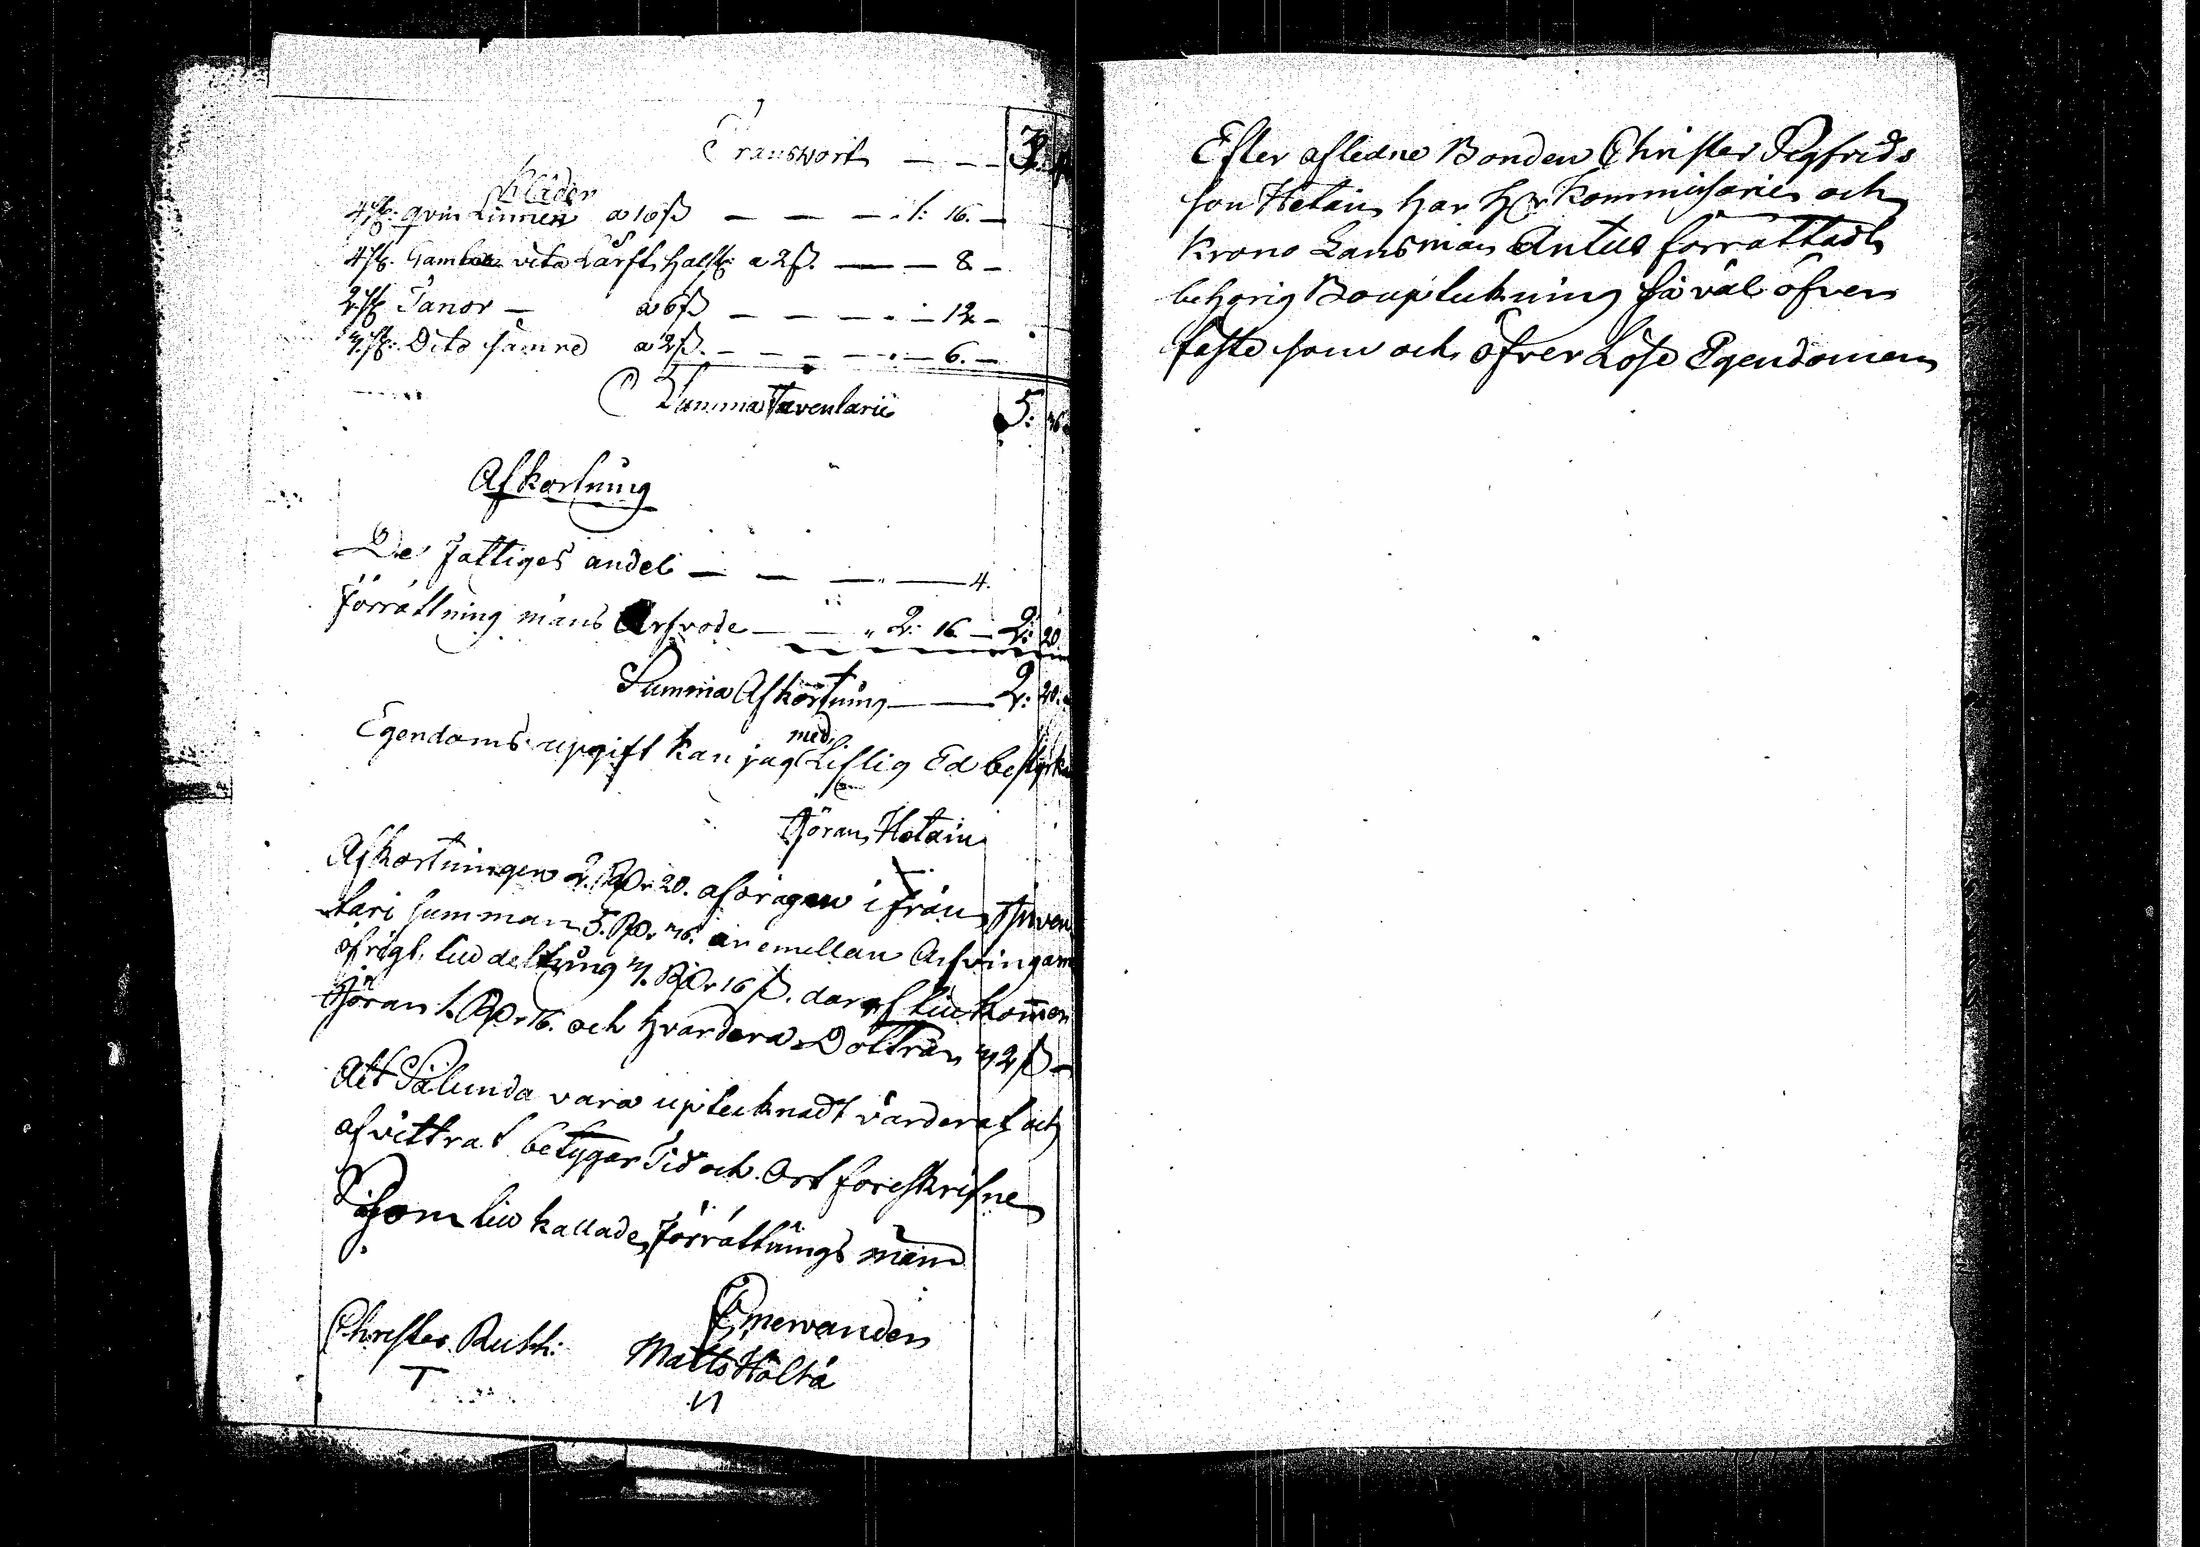 Transport — — 3.
Kläder
4 st: qvin Linnen a 16 ß — — — 1: 16. —
4 st. Gamla vita Lärft halsk: a 2 ß. — — 8. —
2 st Tanor — a 6 ß — — — 12 —
3 st: Dito sämre a 2 ß. — — — 6. —
Summa Inventarii 5:
Afkortning
De fattiges andel — — — 4.
Förrättning mäns Arfvode — — 2: 16 — 2: 20
Summa Afkortning — 2: 20.
Egendoms upgift kan jag med Liflig Ed bestyrka
Göran Hotain
Afkortningen 2. Rdr 20. afdragen ifrån Inven
tari summan 5. Rdr är emellan Arfvingarne
öfrigt. till deltning 3. Rdr 16 ß. daraf tillkommer
Göran 1. Rdr 16. och hvardera Dottren 32 ß —
Att Sålunda vara uptecknadt värderat och
afvittrat betygar Tid och Ort föreskrifne
Som till kallade Förrättnings män
Christer Rusk:
Emervanden
Matts Hältä
Efter afledne Bonden Christer Sigfrids
son Hotain har Hr Kommissarien och
Krono Länsman Antell förrättadt
behörig Boupteckning så väl öfver
fasta som och öfver Lösa Egendomen